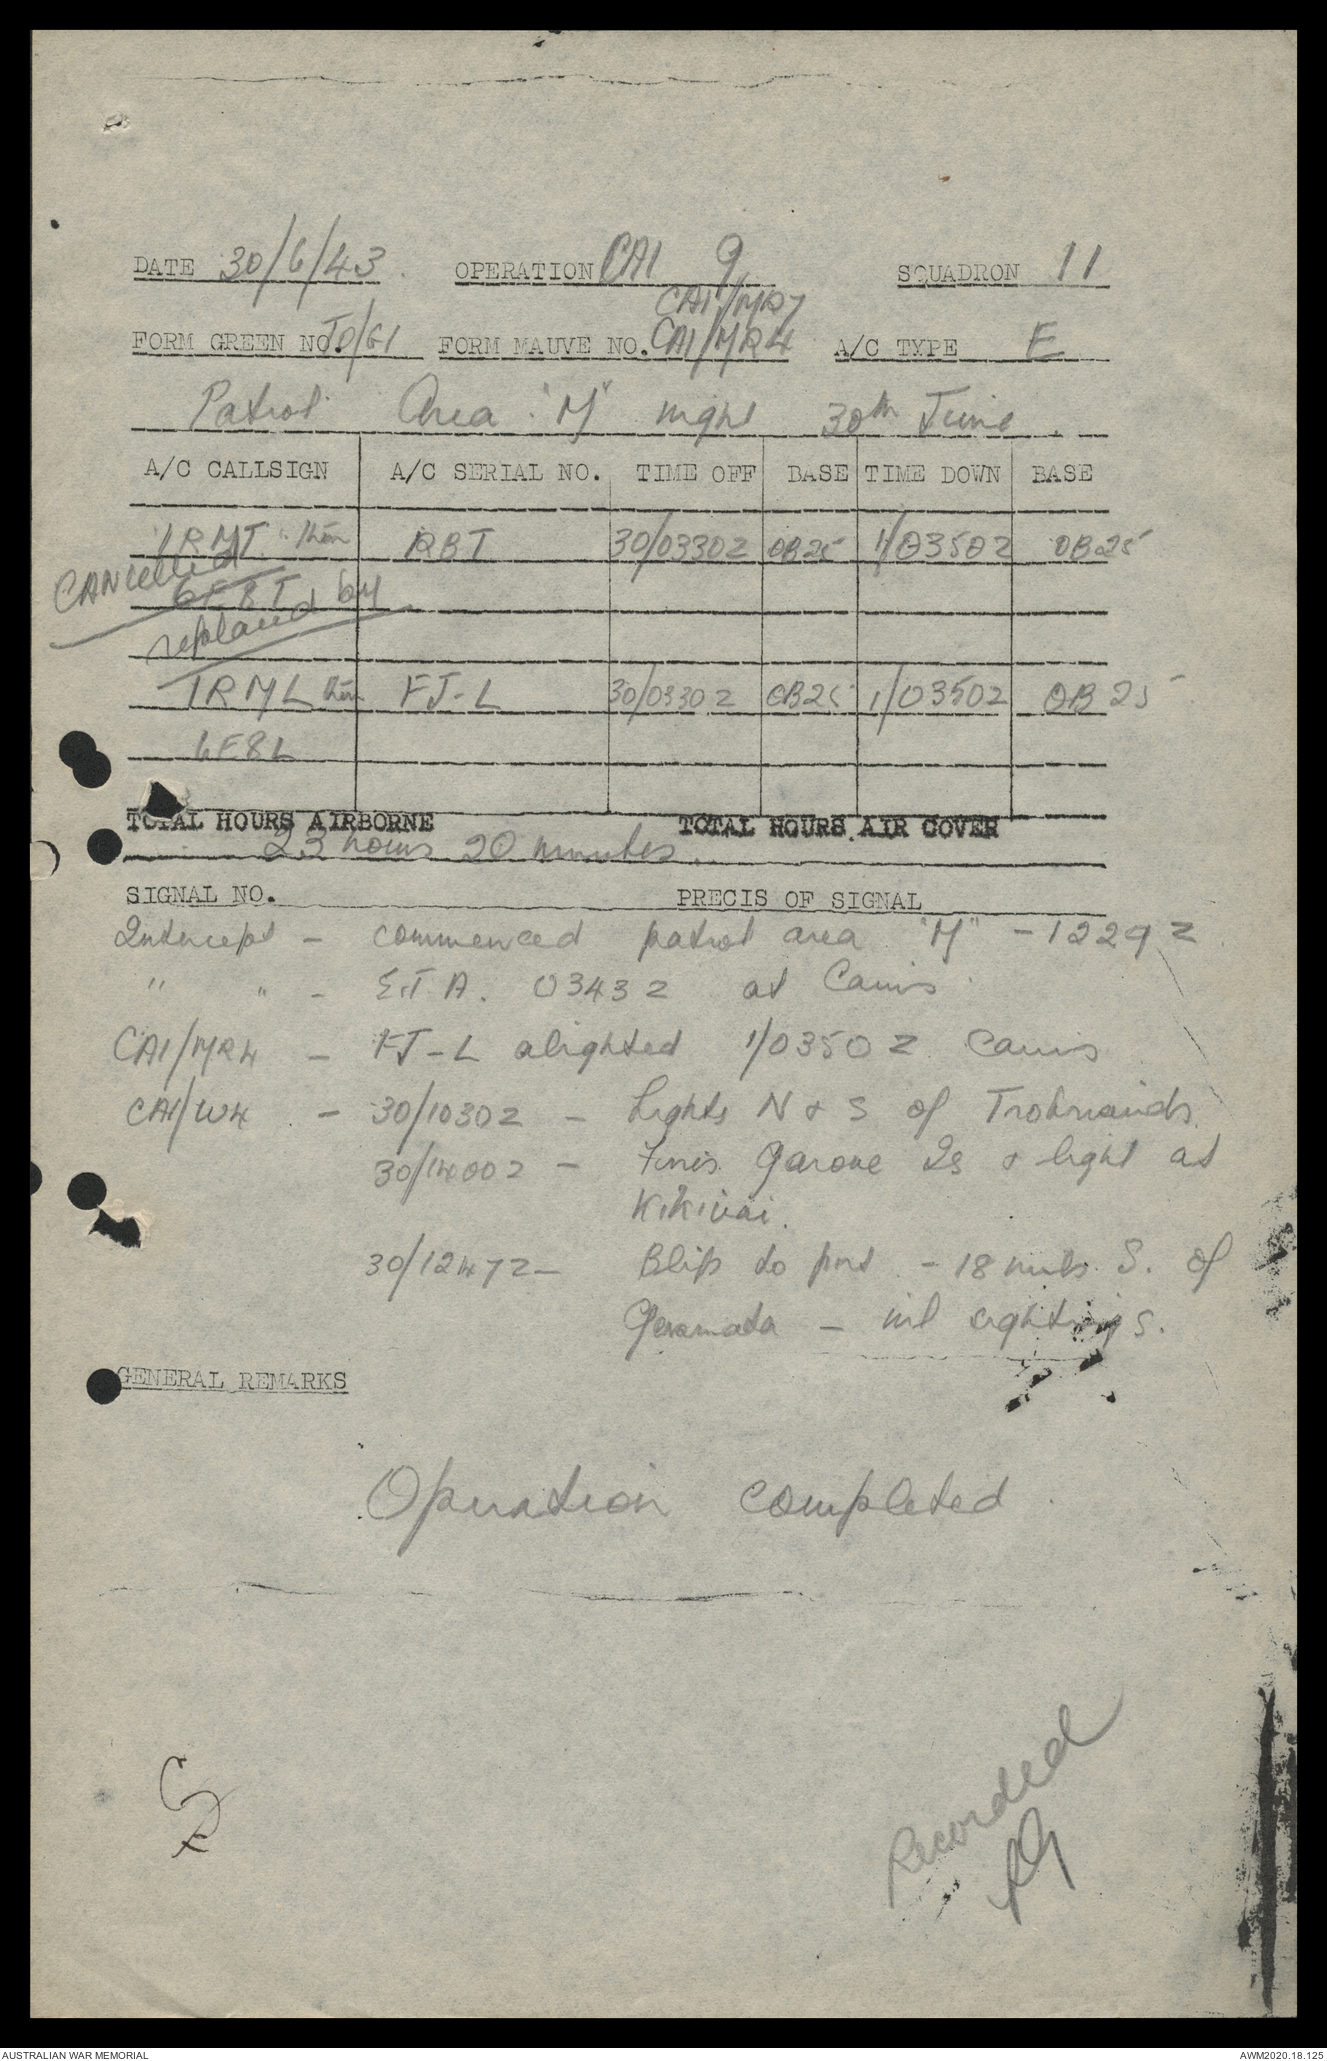 DATE 30/6/43. OPERATION CAI 9 SQUADRON 11
CAI/MR7
FORM GREEN NO. TO/G1 FORM MAUVE NO. CAI/MR4 A/C TYPE E
Patrol Area "M" night 30th June.
A/C CALLSIGN A/C SERIAL NO. TIME OFF BASE TIME DOWN BASE
1RMT then RBT 30/0330Z OB25 1/0350Z OB25
CANcelled
6F8T
replaced by
1RML then FJ-L 30/0330Z OB25 1/0350Z OB25
6F8L
TOTAL HOURS AIRBORNE TOTAL HOURS AIR COVER
23 hours 20 minutes.
SIGNAL NO. PRECIS OF SIGNAL
Intercept - commenced patrol area "M" - 1229Z
" " - E.T.A. 0343Z at Cairns.
CAI/MR4 - FJ-L alighted 1/0350Z Cairns
CAI/W4 - 30/1030Z - Lights N & S of Trobriands.
30/1400Z - Fires Garove Is & light at
Kikiwai.
30/1247Z - Blip to port - 18 miles S. of
- nil sightings.
GENERAL REMARKS
Operation completed.
Recorded
AUSTRALIAN WAR MEMORIAL AWM2020.18.125